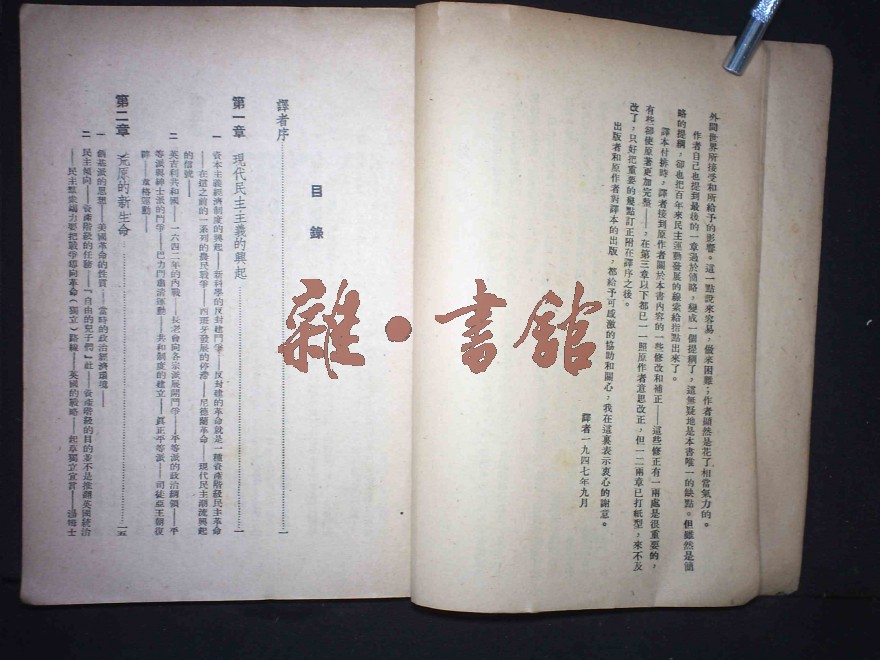 外間世界所接受和所給予的影響。這一點說來容易，做來困難；作者顯然是花了相當氣力的。
作者自己也提到最後的一章過於簡略，變成一個提綱了，這無疑地是本書唯一的缺點。但雖然是簡
略的提綱，卻也把百年來民主運動發展的線索給指點出來了。
譯本付排時，譯者接到原作者關於本書內容的一些修改和補正——這些修正有一兩處是很重要的，
有些卻使原著更加完整——，在第三章以下都已一一照原作者意思改正，但一二兩章已打紙型，來不及
改了，只好把重要的幾點訂正附在譯序之後。
出版者和原作者對譯本的出版，都給予可感激的協助和關心，我在這裏表示衷心的謝意。
譯者一九四七年九月
目錄
譯者序……一
第一章 現代民主主義的興起……一
一 資本主義經濟制度的興起——新科學的反封建鬥爭——反封建的革命就是一種資產階級民主革命
——在這之前的一系列的農民戰爭——西班牙發展的停滯——尼德蘭革命——現代民主潮流興起
的信號——
二 英吉利共和國——一六四二年的內戰——長老會向各宗派展開鬥爭——平等派的政治綱領——平
等派與紳士派的鬥爭——巴力門肅清運動——共和制度的建立——真正平等派——司徒亞王朝復
辟——韋格運動——
第二章 荒原的新生命……一五
一 新基派的思想——美國革命的性質——當時的政治經濟環境——
二 民主傾向——資產階級的任務——「自由的兒子們」社——資產階級的目的並不是推翻英國統治
——民主羣衆竭力要把戰爭導向革命（獨立）路線——英國的戰略——起草獨立宣言——湯姆士
雜·書館